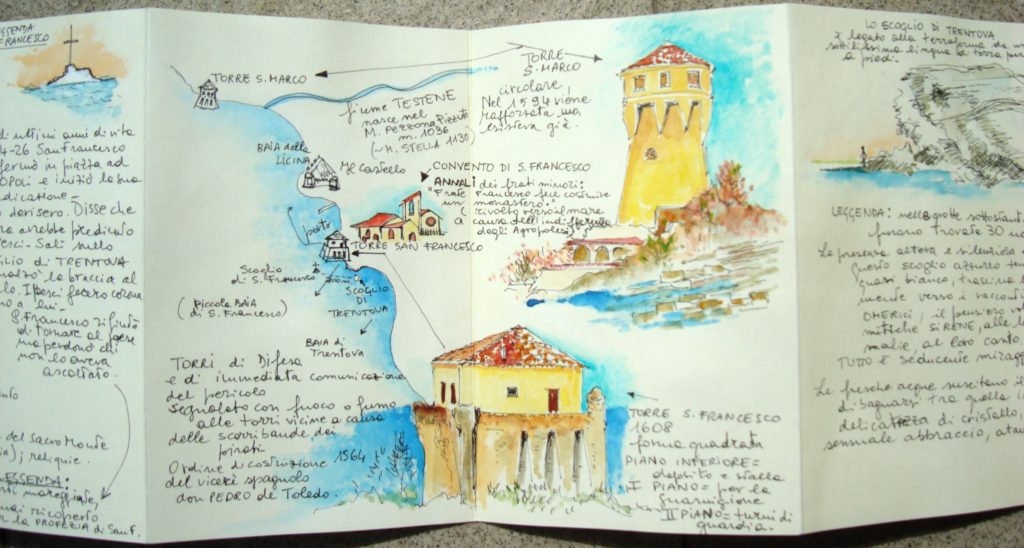 LEGGENDA
FRANCESCO
ultimi anni di vita
4-26 San Francesco
fermò in piazza ad
e iniziò la sua
dicazione -
derisero. Disse che
avrebbe predicato
pesci - Salì sullo
scoglio di TRENTOVA
le braccia al
I pesci fecero corona
a lui -
S. Francesco rifiutò
di tornare al paese
ma perdonò chi
non lo aveva
ascoltato.
del Sacro Monte
; reliquie.
LEGGENDA:
mareggiate,
ricoperto
la PROFEZIA di San F.
TORRE S. MARCO
fiume TESTENE
nasce nel
M. Pezzona Pizzuto
m. 1036
(M. STELLA 1130)
BAIA della
LICINA
Il Castello
porto
CONVENTO DI S. FRANCESCO
ANNALI dei frati minori:
"Frate Francesco fece costruire
un monastero"
(rivolto verso il mare
a causa dell'indifferenza
degli Agropolesi)
TORRE SAN FRANCESCO
Scoglio
di S. Francesco
200m.
SCOGLIO
DI
TRENTOVA
(Piccola BAIA
di S. Francesco)
BAIA di
Trentova
TORRI di Difesa
e di immediata comunicazione
del pericolo
segnalato con fuoco o fumo
alle torri vicine a causa
delle scorribande dei
pirati
1564
Ordine di costruzione
del viceré spagnolo
don PEDRO de Toledo.
TORRE
S. MARCO
circolare!
Nel 1594 viene
rafforzata, ma
esisteva già.
TORRE S. FRANCESCO
1608
forma quadrata
PIANO INFERIORE =
deposito e stalla
I PIANO = per la
guarnigione
II PIANO = turni di
guardia.
LO SCOGLIO DI TRENTOVA
è legato alla terraferma da una
sottilissima lingua di terra
a piedi.
LEGGENDA: nelle grotte sottostanti
furono trovate 30
La presenza aerea e silenziosa
questo scoglio azzurro
quasi bianco, trascina
mente verso i racconti
OMERICI, il pensiero
mitiche SIRENE, alle
malie, al loro canto
TUTTO È seducente miraggio
Le fresche acque suscitano il
di bagnarsi tra quella
delicatezza di cristallo,
sensuale abbraccio,